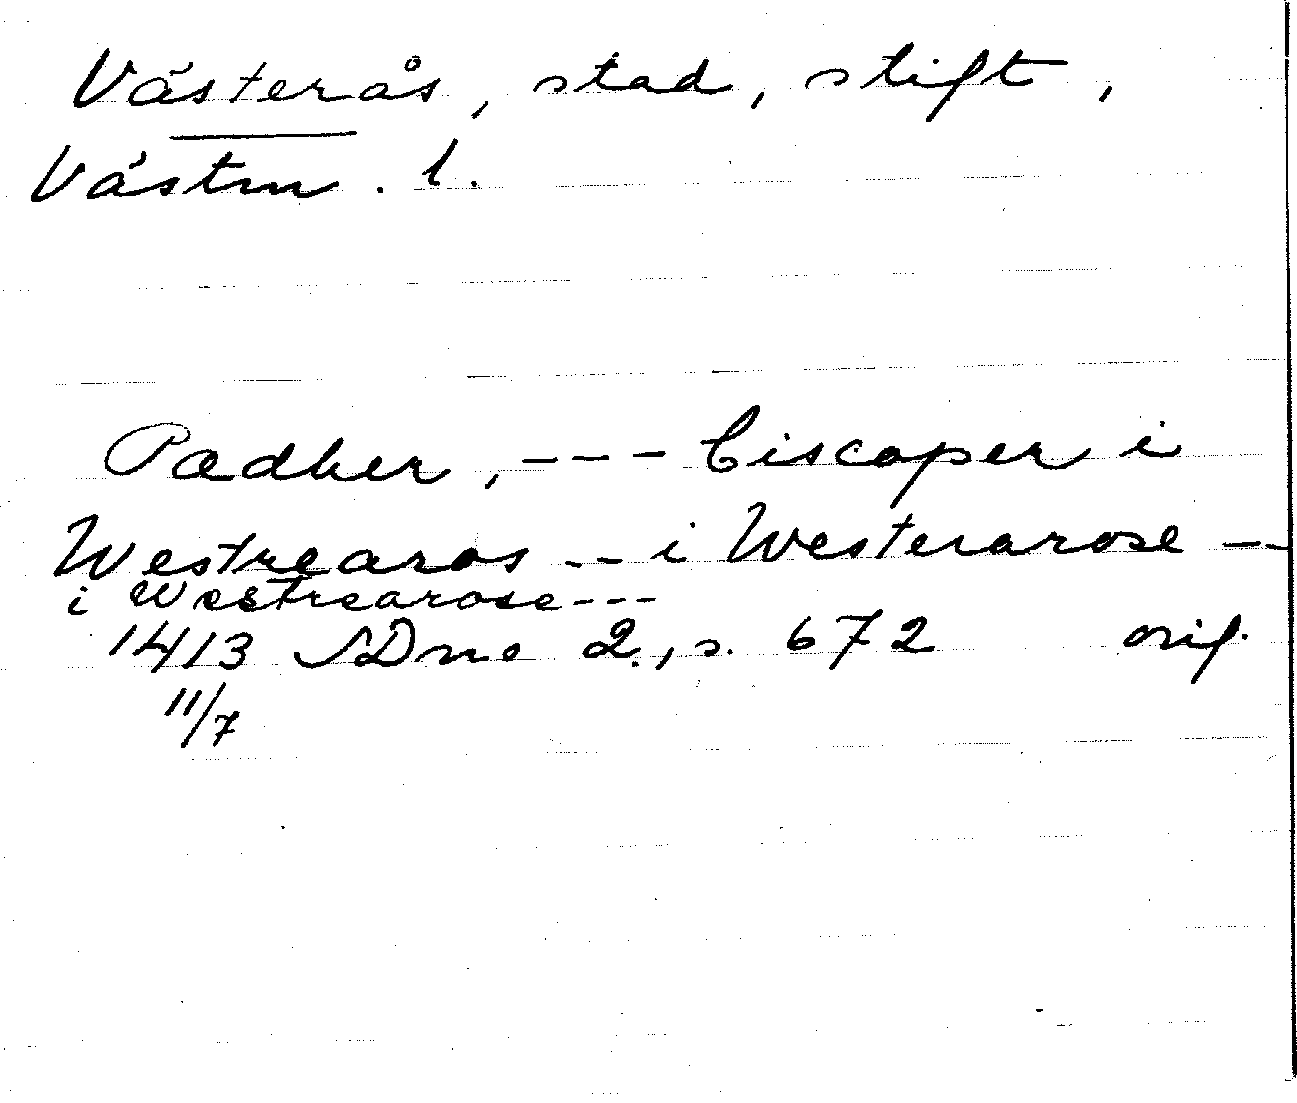 Västerås, stad, stift,
Västm. l.
Pædher, --- biscoper i
Westrearos -- i Westerarose --
i Westrearose ---
1413 SDns 2, s. 672 orig.
11/7